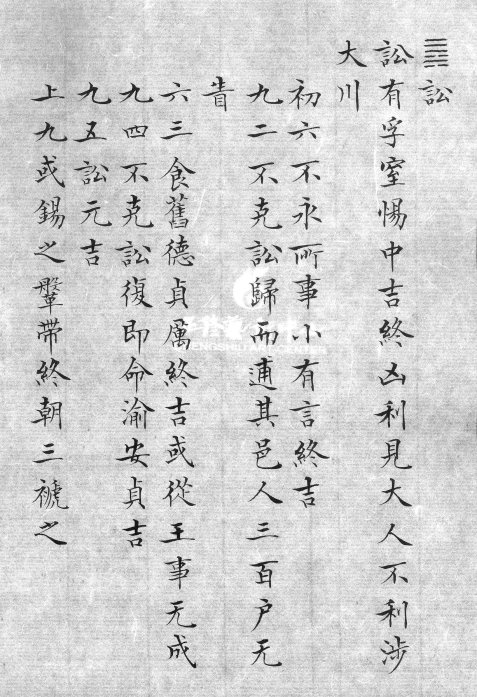 ䷅訟
訟有孚窒惕中吉終凶利見大人不利涉
大川
初六不永所事小有言終吉
九二不克訟歸而逋其邑人三百户无
眚
六三食舊德貞厲終吉或從王事无成
九四不克訟復即命渝安貞吉
九五訟元吉
上九或錫之鞶带終朝三褫之